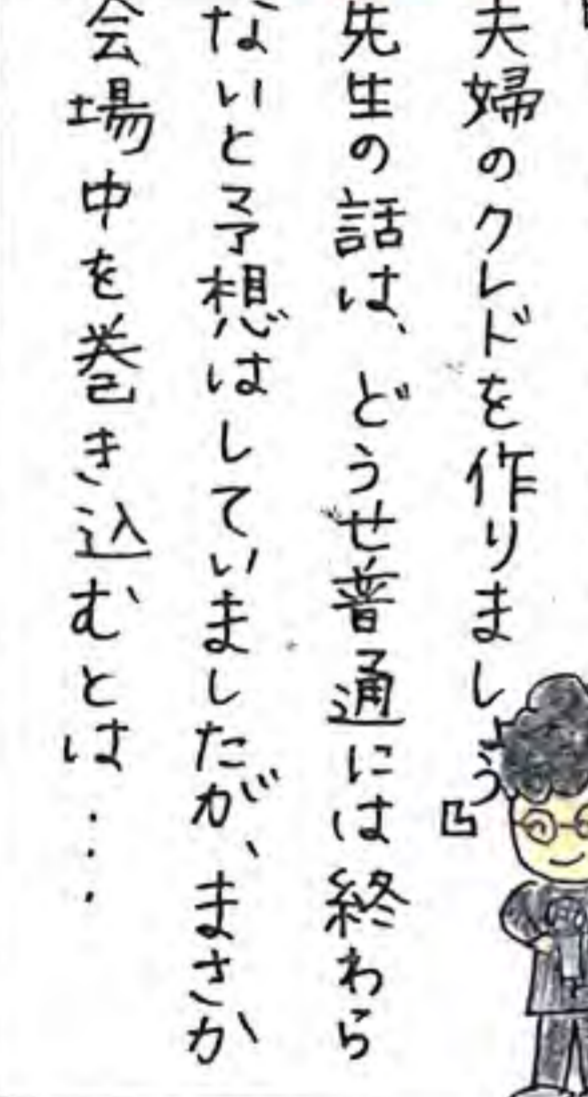 夫婦のクレドを作りましょう』
先生の話は、どうせ普通には終わら
ないと予想はしていましたが、まさか
会場中を巻き込むとは…